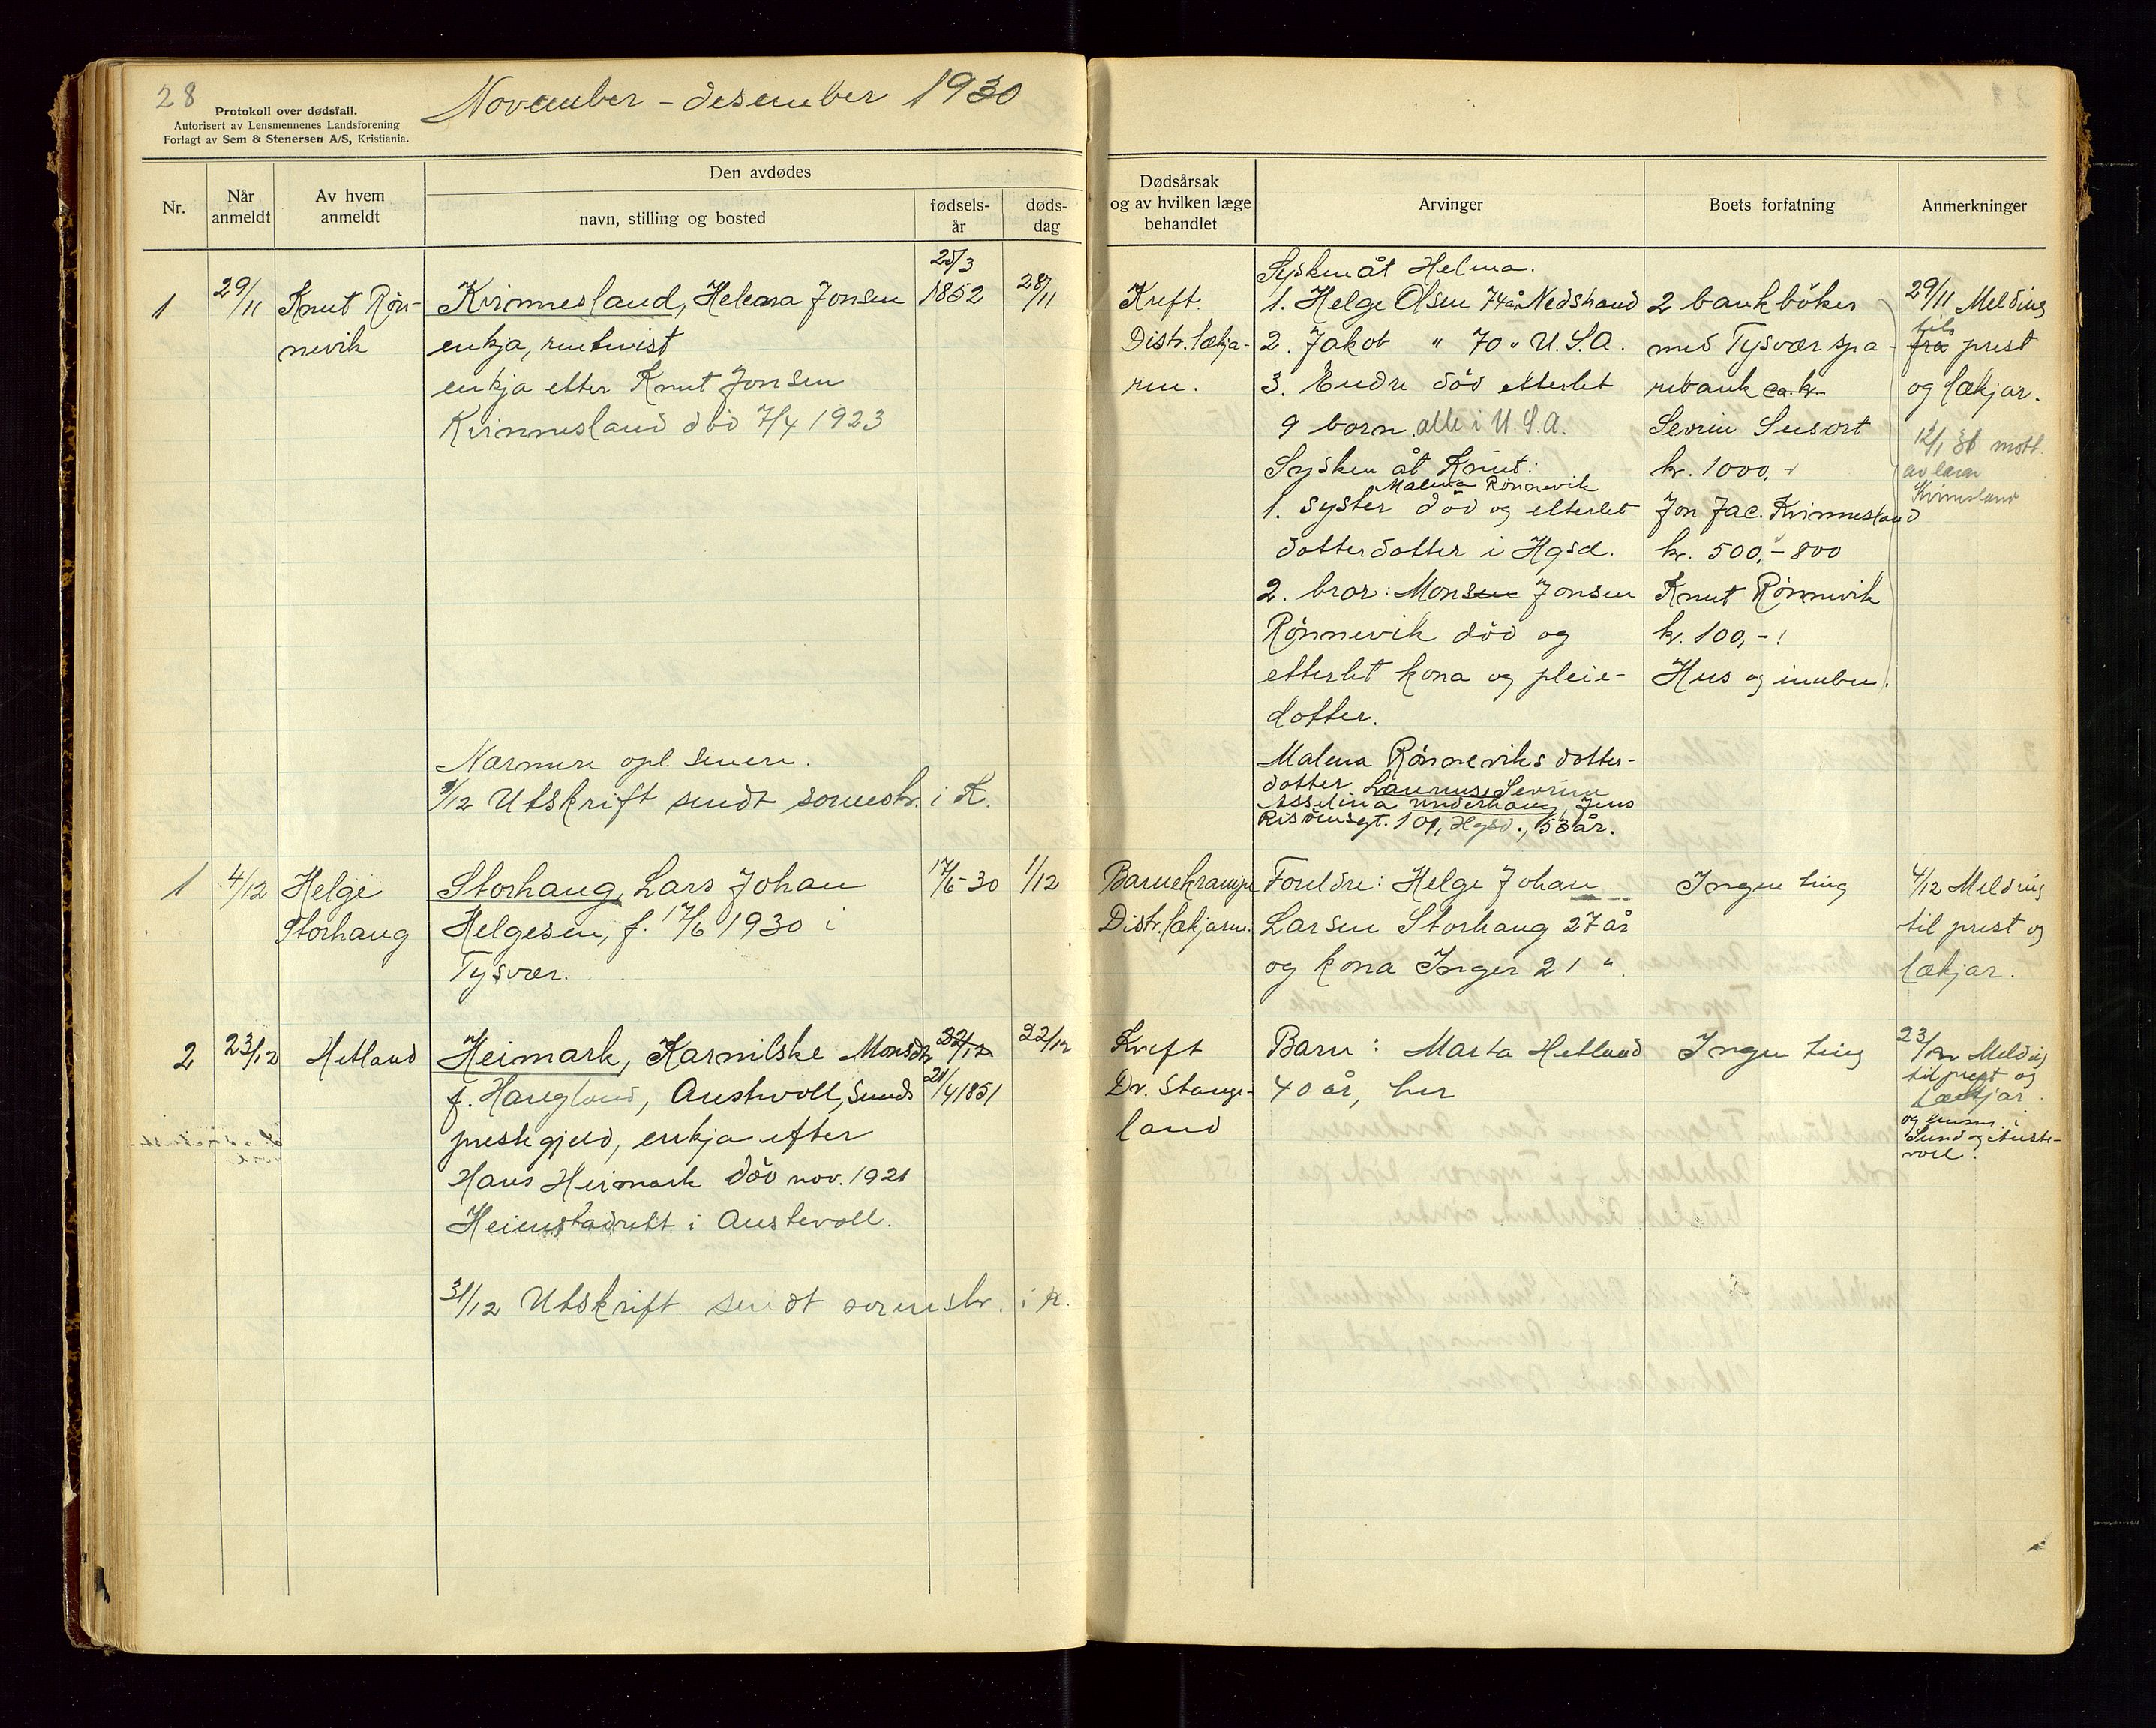 28
Protokoll over dødsfall.
Autorisert av Lensmennenes Landsforening
Forlagt av Sem & Stenersen A/S, Kristiania.
November - desember 1930
Nr.
Når anmeldt
Av hvem anmeldt
Den avdødes
navn, stilling og bosted
fødsels-år
døds-dag
Dødsårsak og av hvilken læge behandlet
Arvinger
Boets forfatning
Anmerkninger
1
29/11
Knut Røn-
nevik
Kvinnesland, Helena Jonsen
enkja,
enkja etter Knut Jonsen
Kvinnesland död 7/4 1923
Nærmere opl. senere.
9/12 Utskrift sendt sorenskr. i K.
25/3
1852
28/11
Kreft.
Distr. lækja-
ren.
Sysken åt Helena.
1. Helge Olsen 74 år Nedstrand
2. Jakob " 70 " U.S.A.
3. Endre död etterlet
9 born, alle i U.S.A.
Sysken åt Knut:
Malena Rönnevik
1. syster död og etterlet
dotterdotter i Hgsd.
2. bror: Monsen Jonsen
Rönnevik död og
etterlet kona og pleie-
dotter.
Malena Rönneviks dotter-
dotter
Risöensgt. 101, Hgsd., 53 år.
2 bankböker
med Tysvær spa-
rebank ca. kr.
Sevrin Susort
kr. 1000,-
Jon Jac. Kvinnesland
kr. 500,- 800
Knut Rönnevik
kr. 100,- !
Hus og innbu.
29/11 Melding
til
fra prest
og lækjar.
12/1 31 mott.
av
Kvinnesland
1
4/12
Helge
Storhaug
Storhaug, Lars Johan
Helgesen, f. 17/6 1930 i
Tysvær.
17/6-30
1/12
Barnekrampe
Distr. lækjaren.
Foreldre: Helge Johan
Larsen Storhaug 27 år
og kona Inger 21 "
Ingen ting
4/12 Melding
til prest og
lækjar.
2
23/12
Hetland
Heimark, Karnilske Monsdtr
f. Haugland, Austevoll, Sunds
prestegjeld, enkja efter
Hans Heimark död nov. 1921
Heimstadrett i Austevoll.
31/12 Utskrift sendt sorenskr. i K.
22/12
21/4 1851
22/12
Kreft
Dr. Stange-
land
Barn: Marta Hetland
40 år, her
Ingen ting
23/12 Melding
til prest og
lækjar.
og
Sund og Auste-
voll.